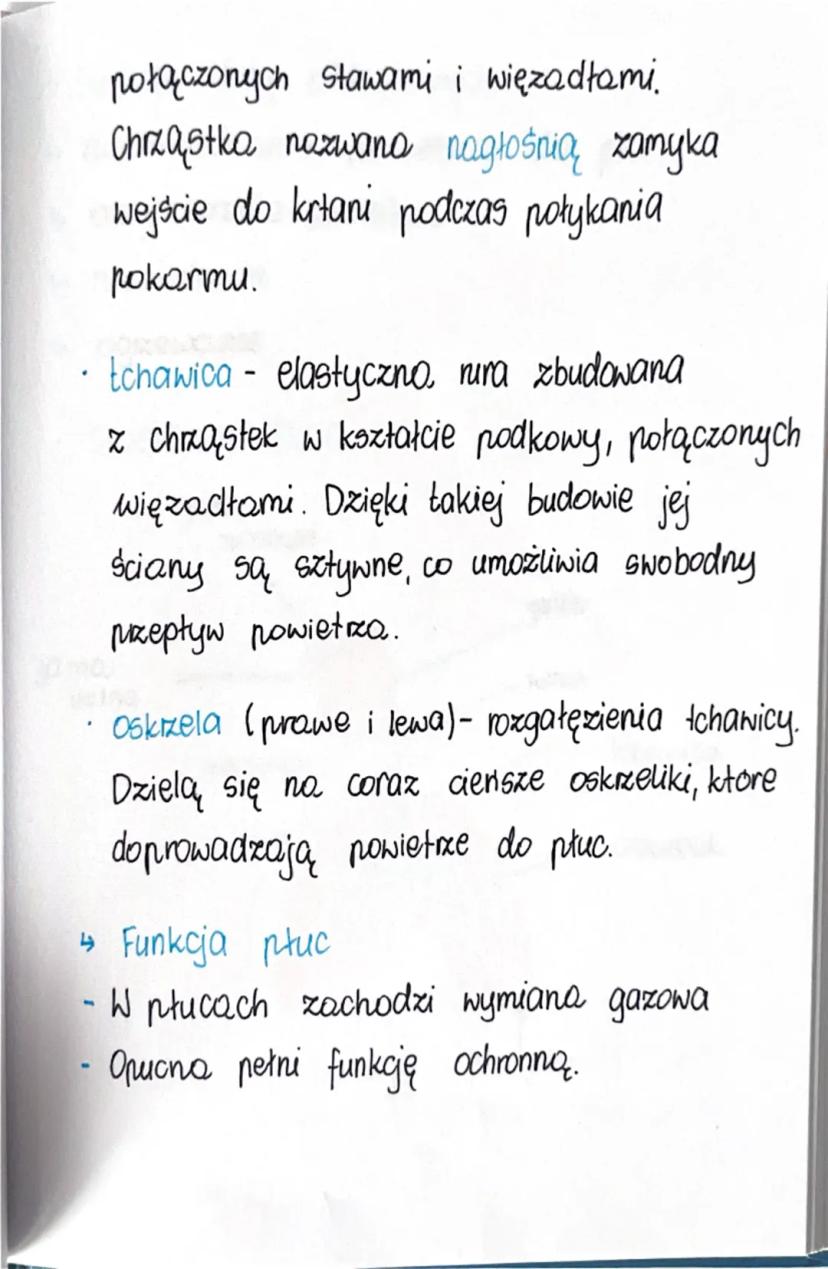 połączonych stawami i więzadłami.
Chrząstka nazwana nagłośnią zamyka
wejście do krtani podczas połykania
pokarmu.
· tchawica - elastyczna rura zbudowana
z chrząstek w kształcie podkowy, połączonych
więzadłami. Dzięki takiej budowie jej
ściany są sztywne, co umożliwia swobodny
przepływ powietrza.
· oskrzela (prawe i lewa) - rozgałęzienia tchawicy.
Dzielą się na coraz cieńsze oskrzeliki, które
doprowadzają powietrze do płuc.
↳ Funkcja płuc
- W płucach zachodzi wymiana gazowa
- Opucna pełni funkcję ochronną.